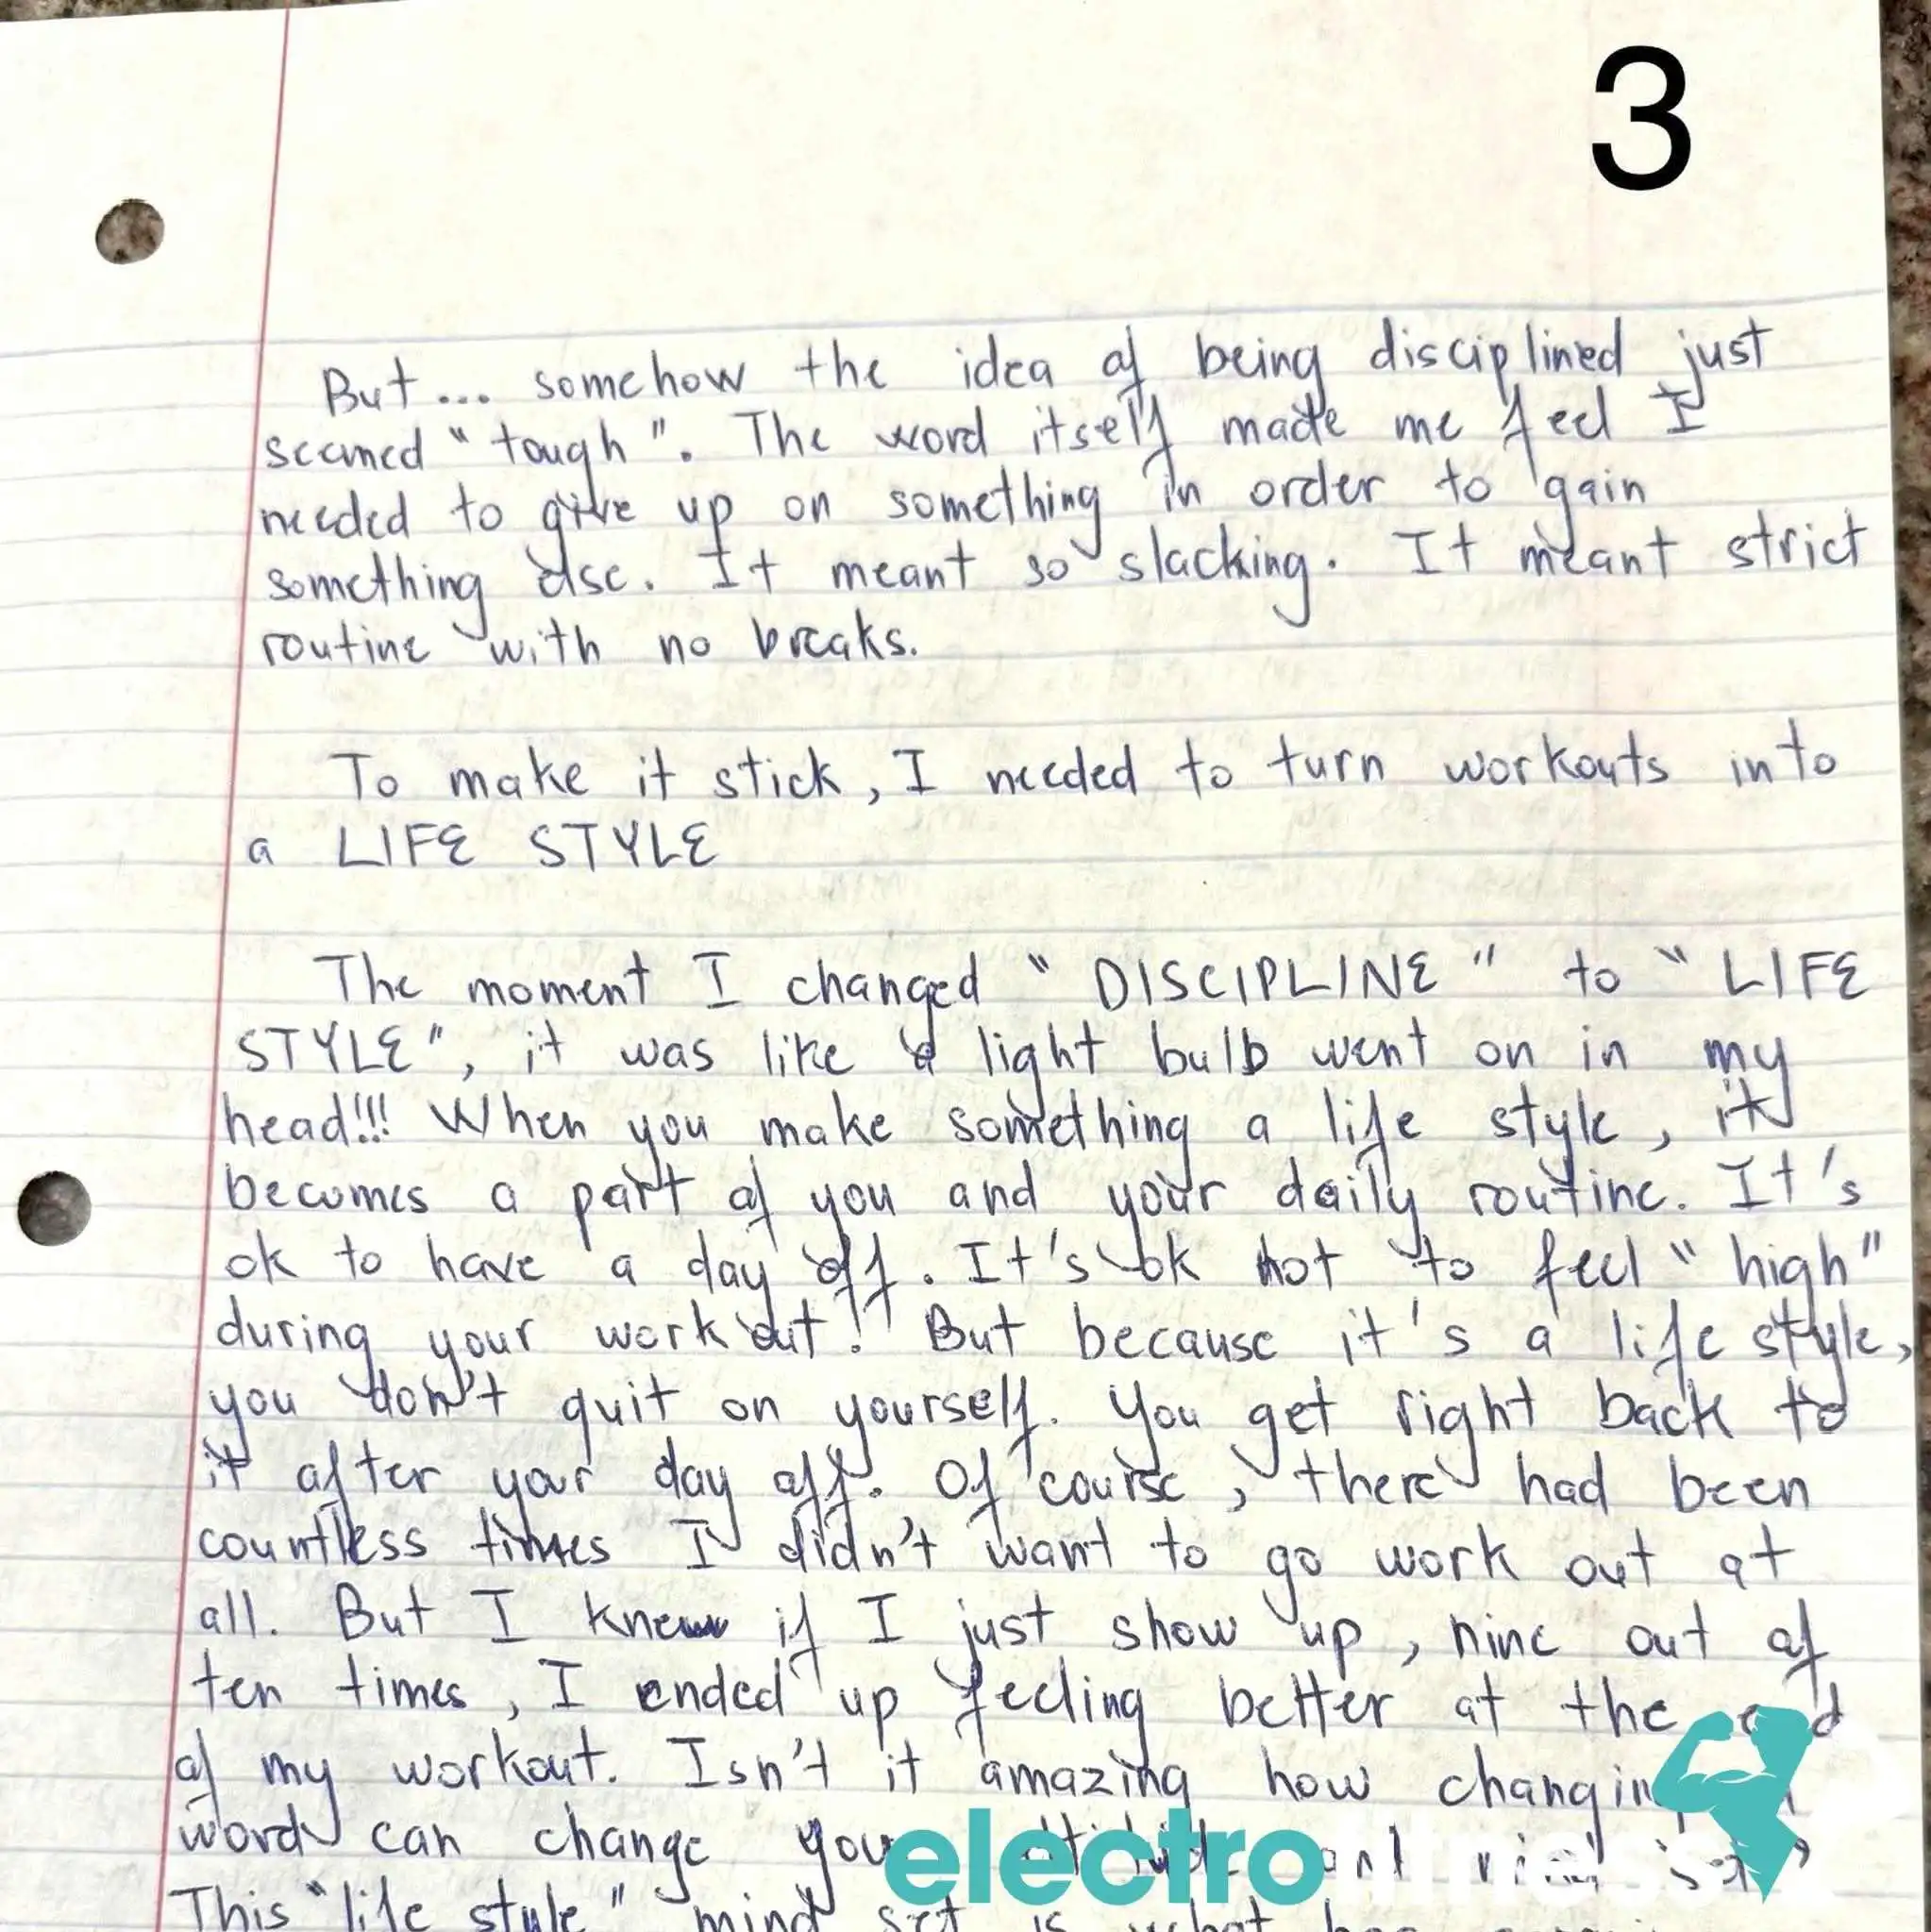 3
But... somehow the idea of being disciplined just
seemed "tough". The word itself made me feel I
needed to give up on something in order to gain
something else. It meant so slacking. It meant strict
routine with no breaks.
To make it stick, I needed to turn workouts into
a LIFE STYLE
The moment I changed "DISCIPLINE" to "LIFE
STYLE", it was like a light bulb went on in my
head!!! When you make something a life style, it
becomes a part of you and your daily routine. It's
ok to have a day off. It's ok not to feel "high"
during your work out! But because it's a life style,
you don't quit on yourself. You get right back to
it after your day off. Of course, there had been
countless times I didn't want to go work out at
all. But I knew if I just show up, nine out of
ten times, I ended up feeling better at the end
of my workout. Isn't it amazing how changing
word can change
electrofitness
This "life style" mind set is what has